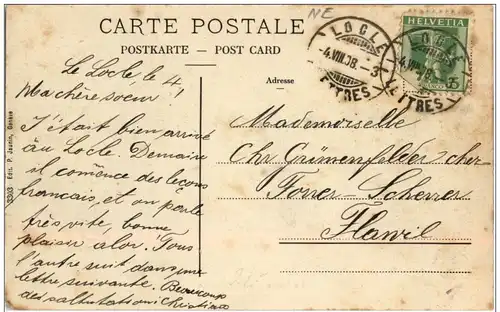 CARTE POSTALE
POSTKARTE – POST CARD
NE
LOCLE
-4.VIII.08.-3
LETTRES
LOCLE
-4.VIII.08
LETTRES
HELVETIA
5
Adresse
Le Locle, le 4!
Ma chère soeur!
J'était bien arrivé
au Locle. Demaine
il comence des leçons
francais, et on parle
très vite, bonne
plaisir alor. Tous
l'autre suit dans une
lettre suivante. Beaucoup
des salhutationi Christian
Mademoiselle
Chr Grünenfelder cher
Forrer-Scherrer
Flawil
3303 Edit. P. Jaunin, Genève